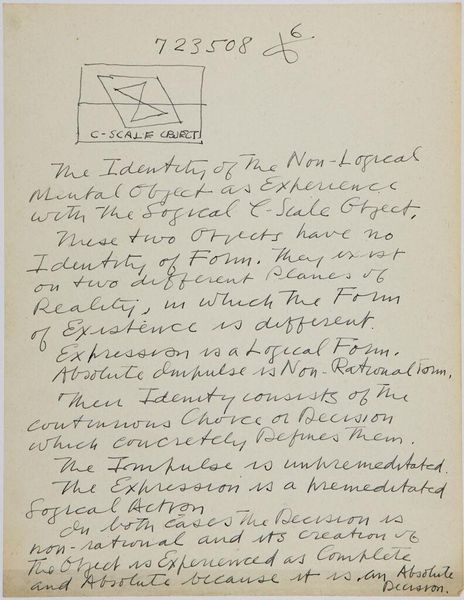 723508 6
C-SCALE OBJECT
The Identity of The Non-Logical
Mental Object as Experience
with The Logical C-Scale Object.
These two Objects have no
Identity of Form. They exist
on two different Planes of
Reality, in which The Form
of Existence is different.
Expression is a Logical Form.
Absolute Impulse is Non-Rational Form.
Their Identity consists of The
continuous Choice or Decision
which concretely Defines Them.
The Impulse is unpremeditated.
The Expression is a premeditated
Logical Action
In both cases The Decision is
non-rational and its creation of
The Object is Experienced as Complete
and Absolute because it is an Absolute
Decision.